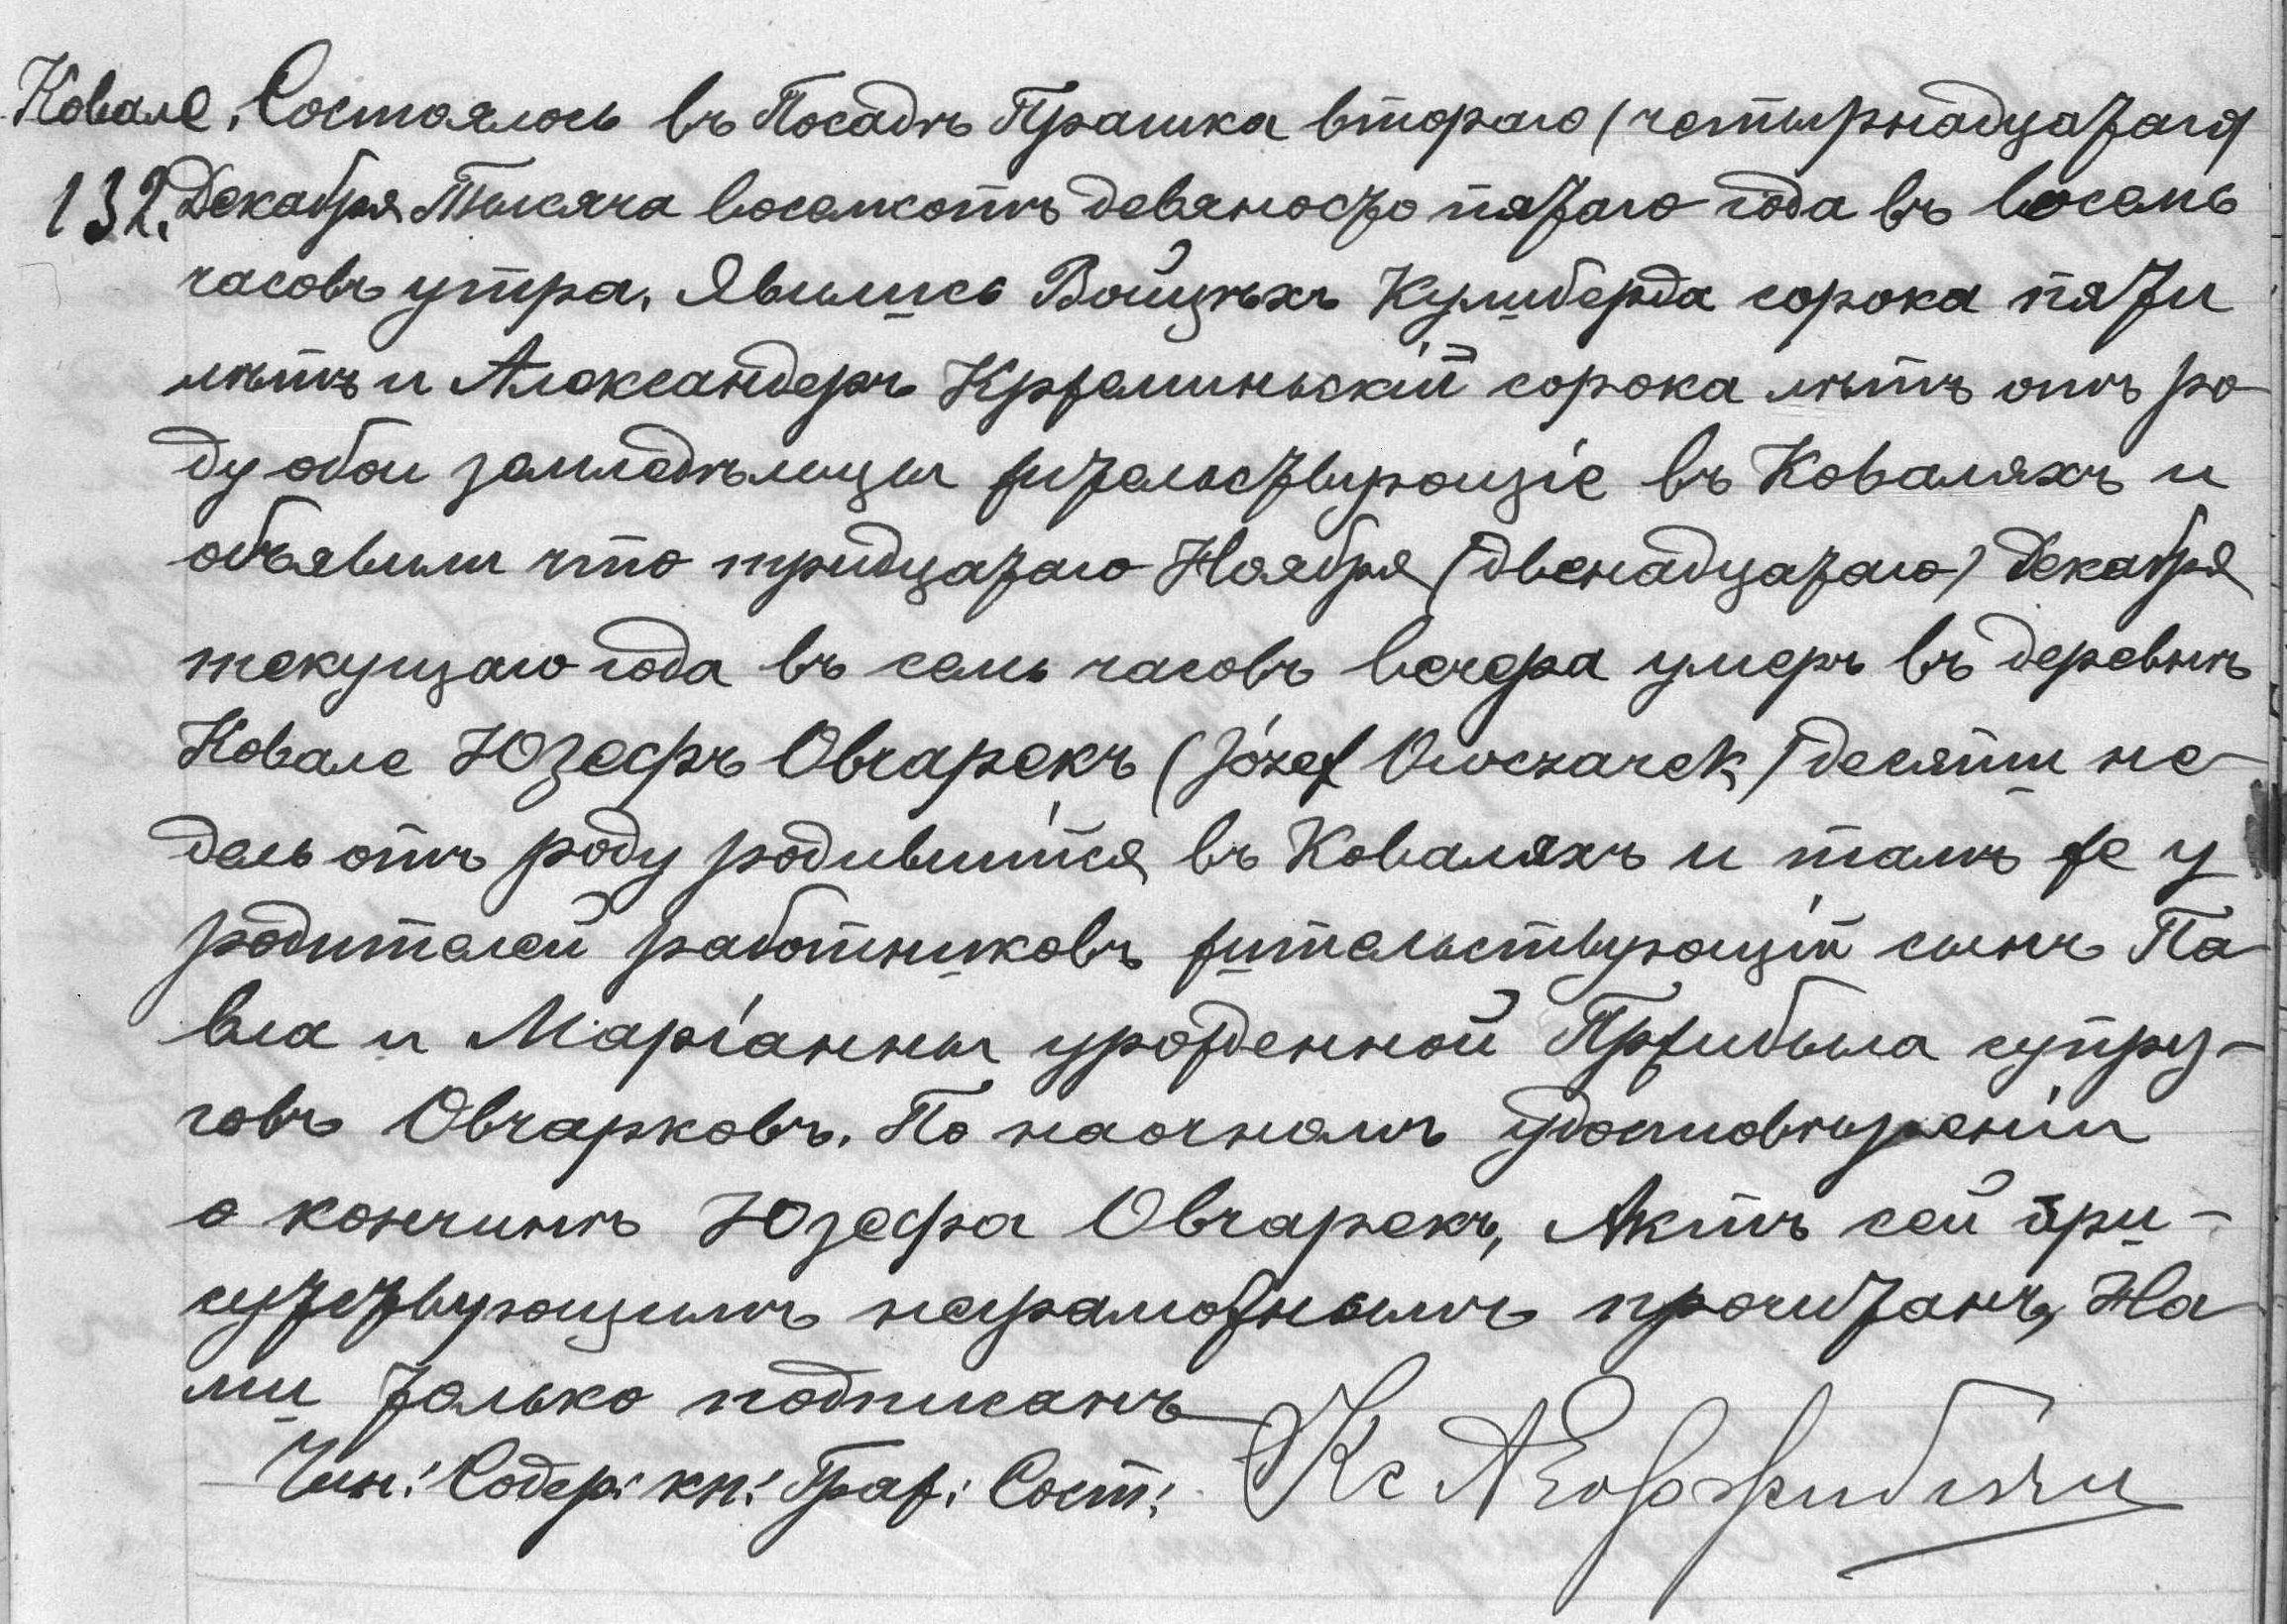 Ковале. Состоялось въ Посадѣ Прашка втораго (четырнадцатаго)
132. Декабря Тысяча восемсотъ девяносто пятаго года въ восемь
часовъ утра. Явились Войцѣхъ Кулиберда сорока пяти
лѣтъ и Александеръ Кржеминьскій сорока лѣтъ отъ ро-
ду обои земледѣльцы жительствующіе въ Коваляхъ и
объявили что тридцатаго Ноября (двенадцатаго) Декабря
текущаго года въ семь часовъ вечера умеръ въ деревнѣ
Ковале Юзефъ Овчарекъ (Józef Owczarek) десяти не-
дель отъ роду родившійся въ Коваляхъ и тамъ же у
родителей работниковъ жительствующій сынъ Па-
вла и Маріанны урожденной Пржибыла супру-
говъ Овчарковъ. По наочномъ удостовѣреніи
о кончинѣ Юзефа Овчарекъ, Актъ сей при-
сутствующимъ неграмотнымъ прочитанъ, На-
ми только подписанъ
Чин: Содер: кн: Граж: Сост: Кс А